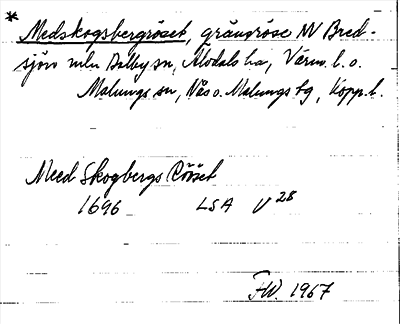 *
Medskogsbergröset, gränsröse NV Bred-
sjön mln Dalby sn, Älvdals hd, Värml. l. o.
Malungs sn, Nås o. Malungs tg, Kopp. l.
Meed Skogbergs Rööset
1696 LSA V 28
FW. 1967